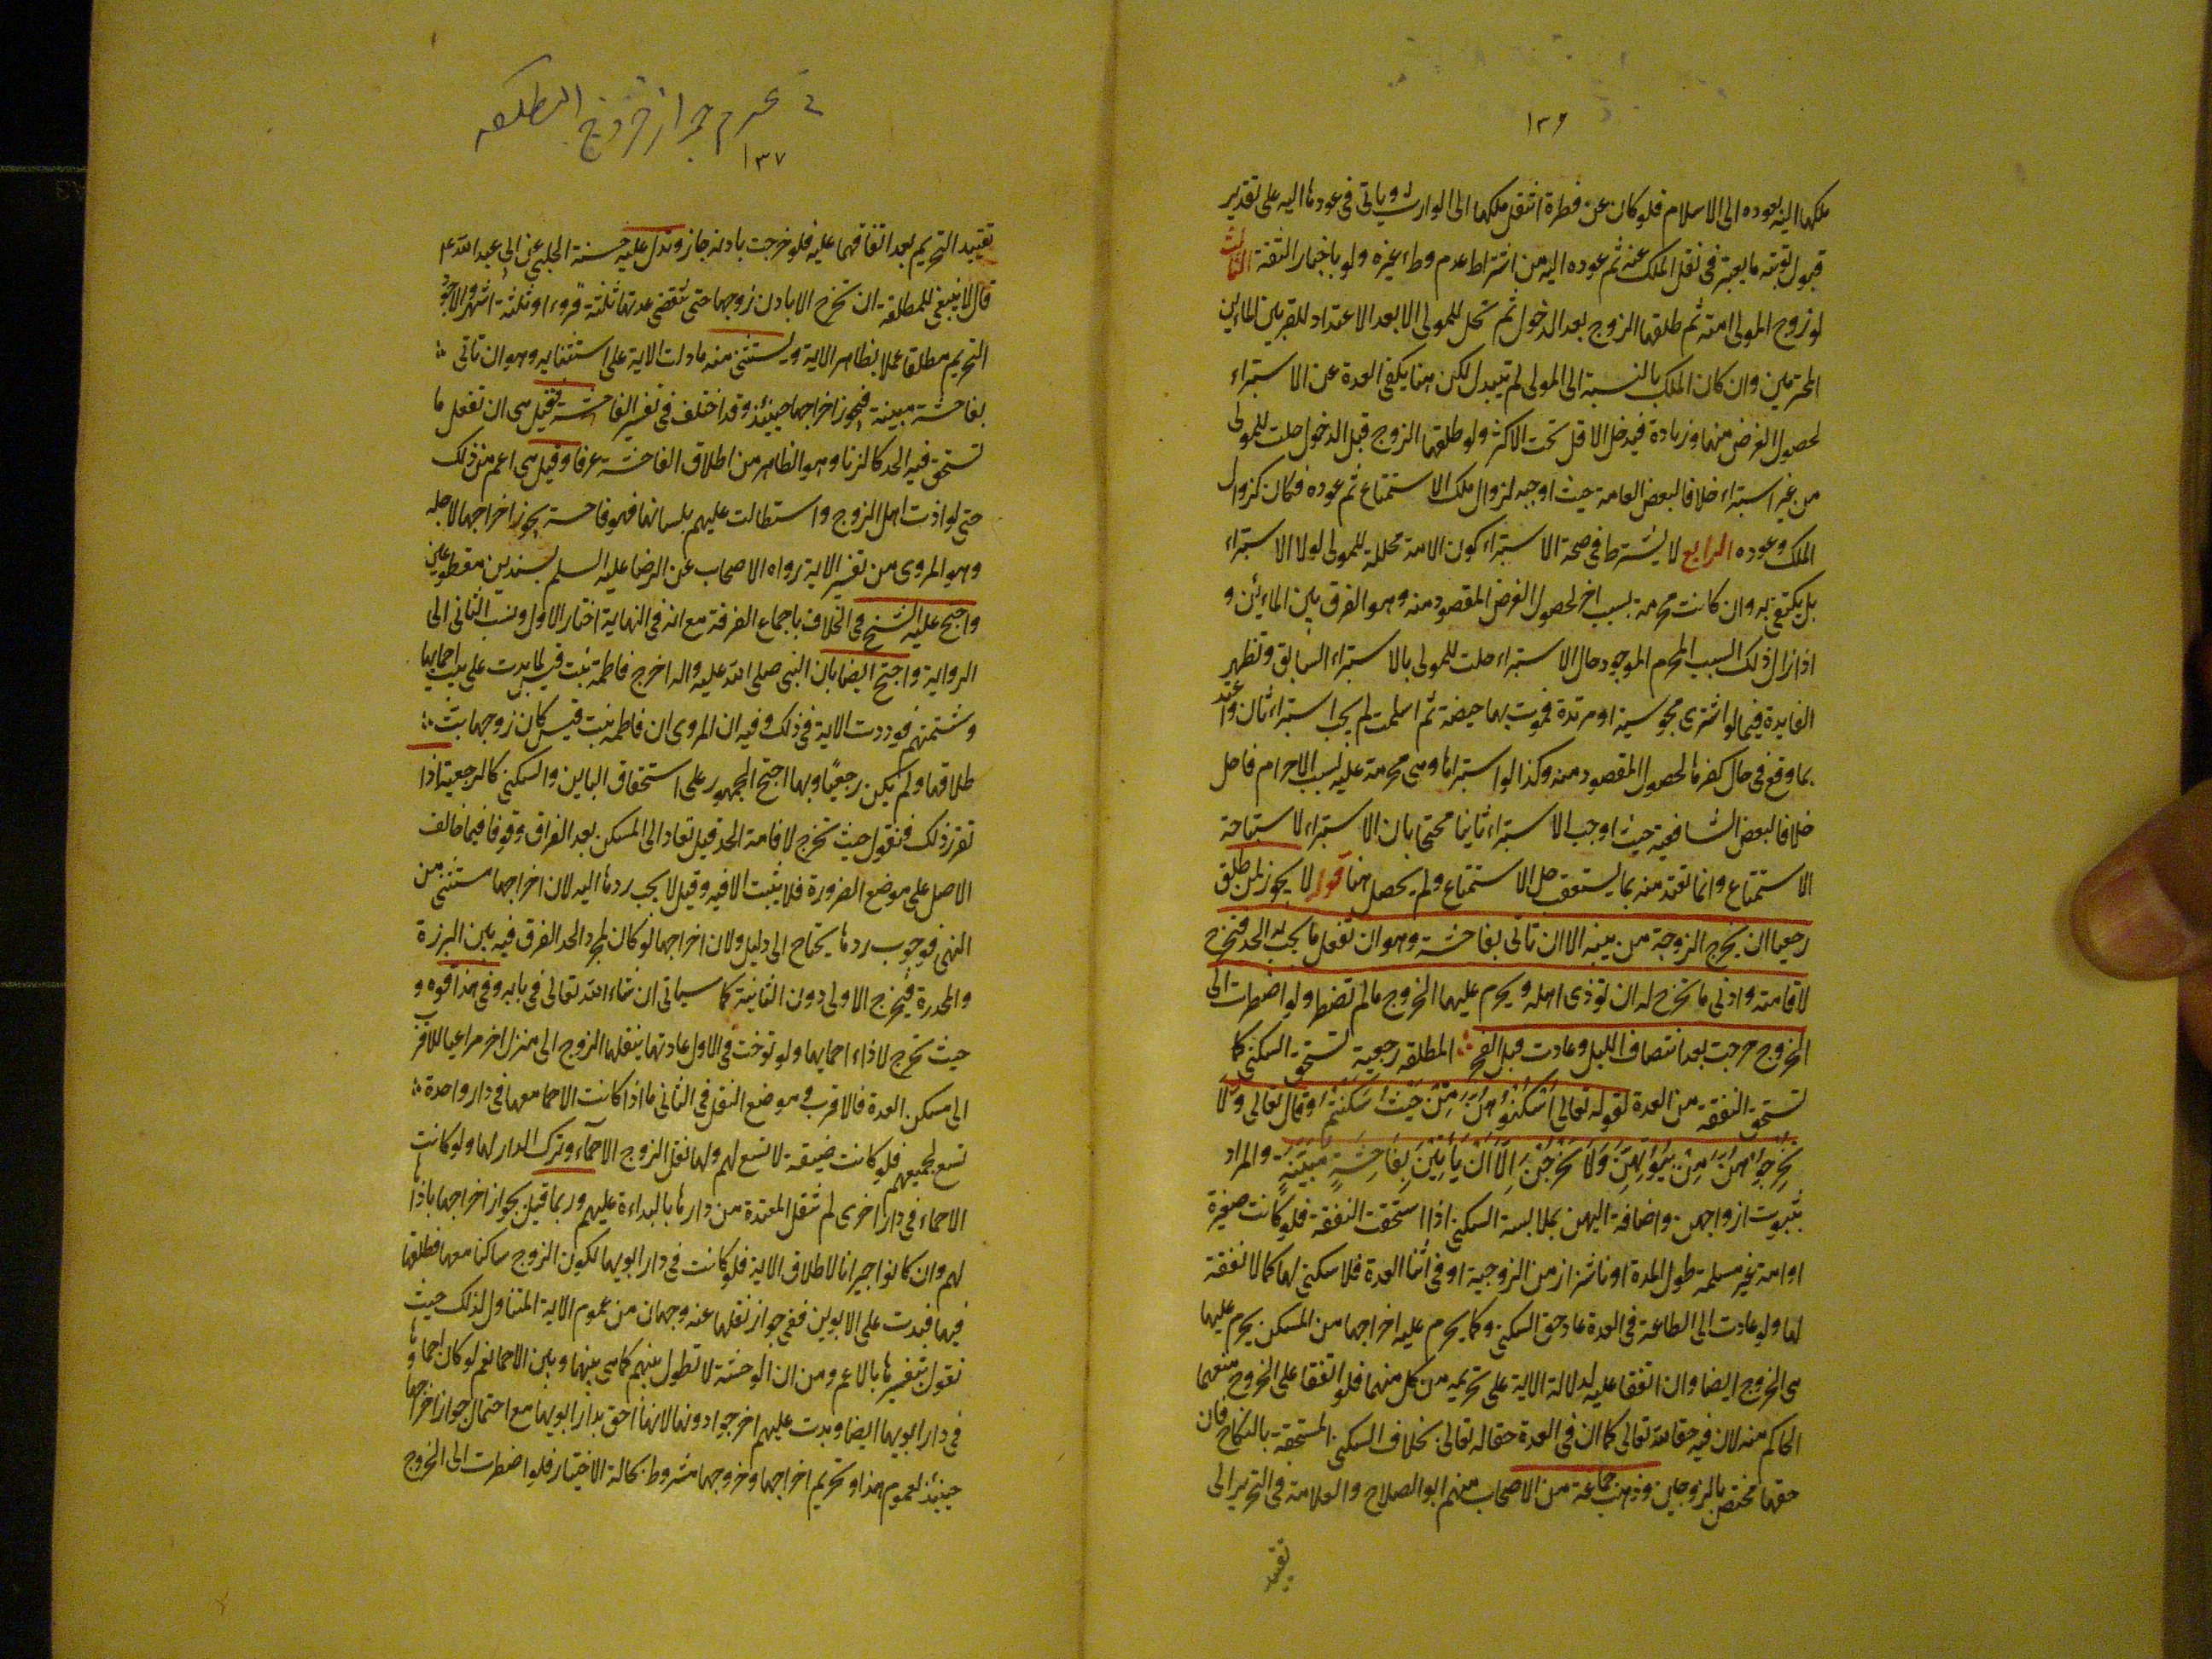 ١٣٦
ملكها اليه بعوده الى الاسلام فلو كان عن فطرة انتقل ملكها الى الوارث وياتي في عودها اليه على تقدير
قبول توبته ما يعتبر في نقل الملك عنه ثم عوده اليه من اشتراط عدم وطء غيره ولو باخبار الثقة الثالث
لو زوج المولى امته ثم طلقها الزوج بعد الدخول لم تحل للمولى الا بعد الاعتداد للتفريق بين المائين
المحترمين وان كان الملك بالنسبة الى المولى لم يتبدل لكن هنا يكفي العدة عن الاستبراء
لحصول الغرض منها وزيادة فيدخل الاقل تحت الاكثر ولو طلقها الزوج قبل الدخول حلت للمولى
من غير استبراء خلافا لبعض العامة حيث اوجبه لزوال ملك الاستمتاع ثم عوده فكان كزوال
الملك وعوده الرابع لا يشترط في صحة الاستبراء كون الامة محللة للمولى لولا الاستبراء
بل يكتفى به وان كانت محرمة بسبب اخر لحصول الغرض المقصود منه وهو الفرق بين المائين و
اذا زال ذلك السبب المحرم الموجود حال الاستبراء حلت للمولى بالاستبراء السابق وتظهر
الفايدة فيما لو اشترى مجوسية او مرتدة فمرت بها حيضة ثم اسلمت لم يجب استبراء ثان واعتد
بما وقع في حال كفرها لحصول المقصود منه وكذا لو استبراها وهي محرمة عليه بسبب الاحرام فاحل
خلافا لبعض الشافعية حيث اوجب الاستبراء ثانيا محتجا بان الاستبراء لاستباحة
الاستمتاع وانما تعتد منه بما يستعقب حل الاستمتاع ولم يحصل هنا قوله لا يجوز لمن طلق
رجعيا ان يخرج الزوجة من بيته الا ان تاتى بفاحشة وهو ان تفعل ما يجب به الحد فتخرج
لاقامته وادنى ما تخرج له ان توذى اهله ويحرم عليها الخروج مالم تضطر ولو اضطرت الى
الخروج خرجت بعد انتصاف الليل وعادت قبل الفجر المطلقه رجعية تستحق السكنى كما
تستحق النفقة من العدة لقوله تعالى اسكنوهن من حيث سكنتم وقال تعالى ولا
تخرجوهن من بيوتهن ولا يخرجن الا ان ياتين بفاحشة مبينة والمراد
ببيوت ازواجهن واضافة اليهن بملابسة السكنى اذا استحقت النفقة فلو كانت صغيرة
او امة غير مسلمة طول المدة او ناشزا زمن الزوجية او في اثنا العدة فلا سكنى لها كما لا نفقة
لها ولو عادت الى الطاعة في العدة عاد حق السكنى وكما يحرم عليه اخراجها من المسكن يحرم عليها
هى الخروج ايضا وان اتفقا عليه لدلالة الاية على تحريمه من كل منهما فلو اتفقا على الخروج منعهما
الحاكم منه لان فيه حقا لله تعالى كما ان في العدة حقا له تعالى بخلاف السكنى المستحقه بالنكاح فان
حقها مختص بالزوجين وذهب جماعة من الاصحاب منهم ابو الصلاح والعلامة في التحرير الى
تقييد
في عدم جواز خروج المطلقه
١٣٧
تقييد التحريم بعد اتفاقهما عليه فلو خرجت باذنه جاز وتدل عليه حسنة الحلبى عن ابى عبد الله ع
قال لا ينبغي للمطلقة ان تخرج الا باذن زوجها حتى تنقضى عدتها ثلثة قروء او ثلثة اشهر والاجود
التحريم مطلقا عملا بظاهر الاية ويستثنى منه ما دلت الاية على استثنايه وهو ان تاتى
بفاحشة مبينة فيجوز اخراجها حينئذ وقد اختلف في تفسير الفاحشة فقيل هى ان تفعل ما
تستحق فيه الحد كالزنا وهو الظاهر من اطلاق الفاحشة عرفا وقيل هى اعم من ذلك
حتى لو اذت اهل الزوج واستطالت عليهم بلسانها فهو فاحشة يجوز اخراجها لاجله
وهو المروى من تفسير الاية رواه الاصحاب عن الرضا عليه السلم بسندين مقطوعين
واحتج عليه الشيخ في الخلاف باجماع الفرقة مع انه في النهاية اختار الاول ونسب الثانى الى
الرواية واحتج ايضا بان النبى صلى الله عليه واله اخرج فاطمة بنت قيس لما بذت على بيت احمايها
وشتمتهم فوردت الاية في ذلك وفيه ان المروى ان فاطمه بنت قيس كان زوجها بت
طلاقها ولم يكن رجعيا وبها احتج الجمهور على استحقاق الباين والسكنى كالرجعية اذا
تقرر ذلك فنقول حيث تخرج لاقامة الحد قيل تعاد الى المسكن بعد الفراق وقوفا فيما خالف
الاصل على موضع الضرورة فلا يثبت الا فيه وقيل لا يجب ردها اليه لان اخراجها مستثنى من
النهى فوجوب ردها يحتاج الى دليل ولان اخراجها لو كان لمجرد الحد لفرق فيه بين البرزة
والمخدرة فيخرج الاولى دون الثانية كما سياتى ان شاء الله تعالى في بابه وفي هذا قوة و
حيث تخرج لاذاء احمايها ولو توخت في الاول عادتها ينقلها الزوج الى منزل اخر مراعيا للاقرب
الى مسكن العدة فالاقرب وموضع النقل في الثانى ما اذا كانت الاحما معها في دار واحدة
تسع لجميعهم فلو كانت ضيقة لا تسع لهم ولها نقل الزوج الاحماء وترك الدار لها ولو كانت
الاحماء في دار اخرى لم تنقل المعتدة من دارها بالبذاءة عليهم وربما قيل بجواز اخراجها باذاها
لهم وان كانوا جيرانا لاطلاق الاية فلو كانت في دار ابويها لكون الزوج ساكنا معها فطلقها
فيها فبذت على الابوين ففي جواز نقلها عنه وجهان من عموم الاية المتناول لذلك حيث
نقول بتفسيرها بالاعم ومن ان الوحشة لا تطول بينهم كما هى بينها وبين الاحما نعم لو كان احماوها
في دار ابويها ايضا وبذت عليهم اخرجوا دونها لانها احق بدار ابويها مع احتمال جواز اخراجها
حينئذ لعموم هذا وتحريم اخراجها وخروجها مشروط بحالة الاختيار فلو اضطرت الى الخروج